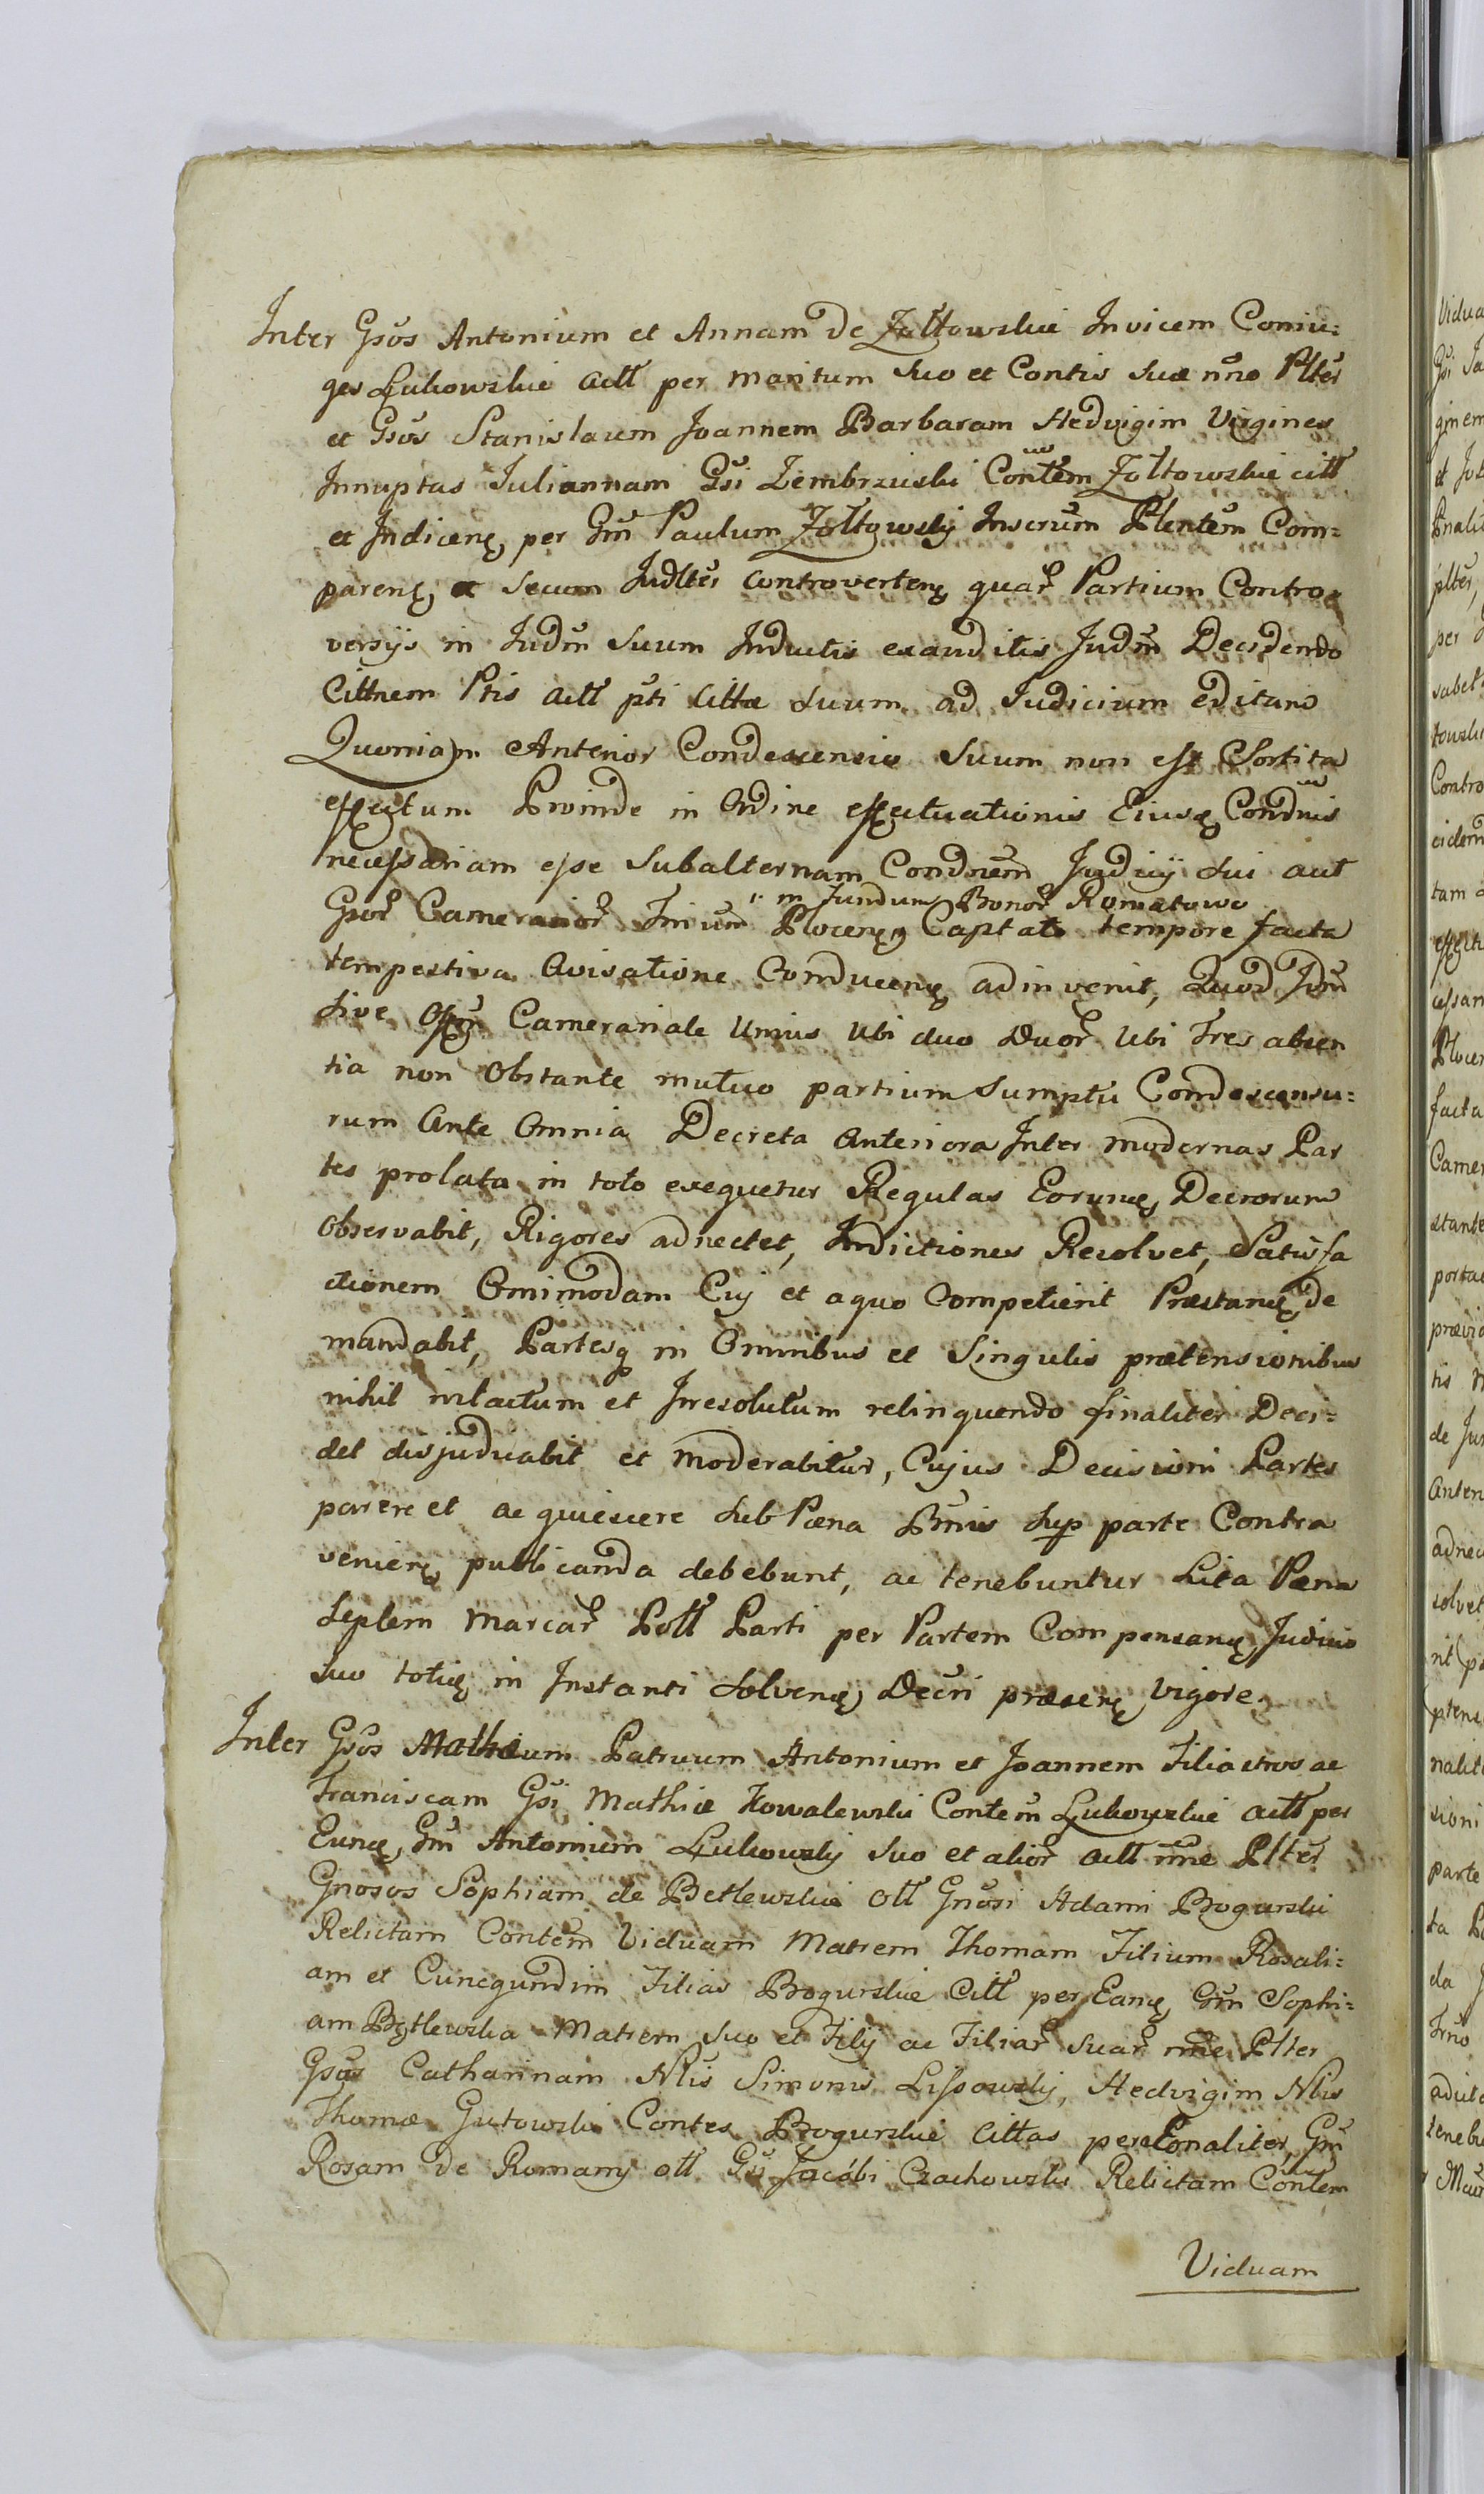 Inter Gsos Antonium et Annam de Zołtowskie Invicem Coniu=
ges Łukowskie actt per maritum suo et Contis suæ nno Plter
et Gsos Stanislaum Joannem Barbaram Hedvigim Virgines
Innuptas Juliannam Gsi Zembrzuski Contem Zołtowskie citt
et Indicenę per Gm Paulum Zołtowskij Inscrum Plentem Com=
parenę, et secum Judlter controvertenę quar Partium Contro=
versijs in Judm suum Inductis exauditis Judm Decidendo
Cittnem Ptis actt pti Cittæ suum ad Judicium editam
Quoniam Anterior Condescensio suum non est Sortita
effectum Proinde in Ordine effectuationis Eiusę Condnis
necessariam esse Subalternam Condnem Judicij sui aut
in Fundum Bonor Romatowo
Gsor Camerarior Trium Plocenę Captato tempore facta
tempestiva avisatione Conducenę adinvenit, Quod Jdm
sive Offm Camerariale Unius Ubi duo Duor Ubi Tres absen
tia non Obstante mutuo partium Sumptu Condescensu=
rum Ante Omnia Decreta Anteriora Inter modernas Par
tes prolata in toto exequetur Regulas Eorumę Decrorum
Observabit, Rigores adnectet, Indictiones Resolvet, Satisfa
ctionem Omimodam Cuj et a quo Competierit Præstanę de
mandabit, Partesq in Omnibus et Singulis prætensionibus
nihil intactum et Irresolutum relinquendo finaliter Deci=
det disjudicabit et moderabitur, Cujus Decisioni Partes
parere et acquiescere sub Pæna Bnnis sup parte Contra
venienę publicanda debebunt, ac tenebuntur Lita Pæna
Septem Marcar Poll Parti per Partem Compensanę, Judicio
suo totię in Instanti Solvenę, Decri præsenę vigore.
Inter Gsos Mathæum Patruum Antonium et Joannem Filiastros ac
Franciscam Gsi Mathiæ Kowalewski Contem Łukowskie actt per
Eunę Gm Antonium Łukowskij suo et alior actt nne Plter
Gnosos Sophiam de Betlewskie ott Gnosi Adami Bogurski
Relictam Contem Viduam Matrem Thomam Filium Rosali=
am et Cunegundim Filias Bogurskie Citt per Eanę Gm Sophi=
am Betlewska Matrem suo et Filij ac Filiar suar nne Plter
Gsos Catharinam Nlis Simonis Lissowskij, Hedvigim Nlis
Thomæ Gutowski Contes Bogurskie Cittas personaliter, Gm
Rosam de Romany ott Gsi Jacobi Czachowski Relictam Contem
Viduam